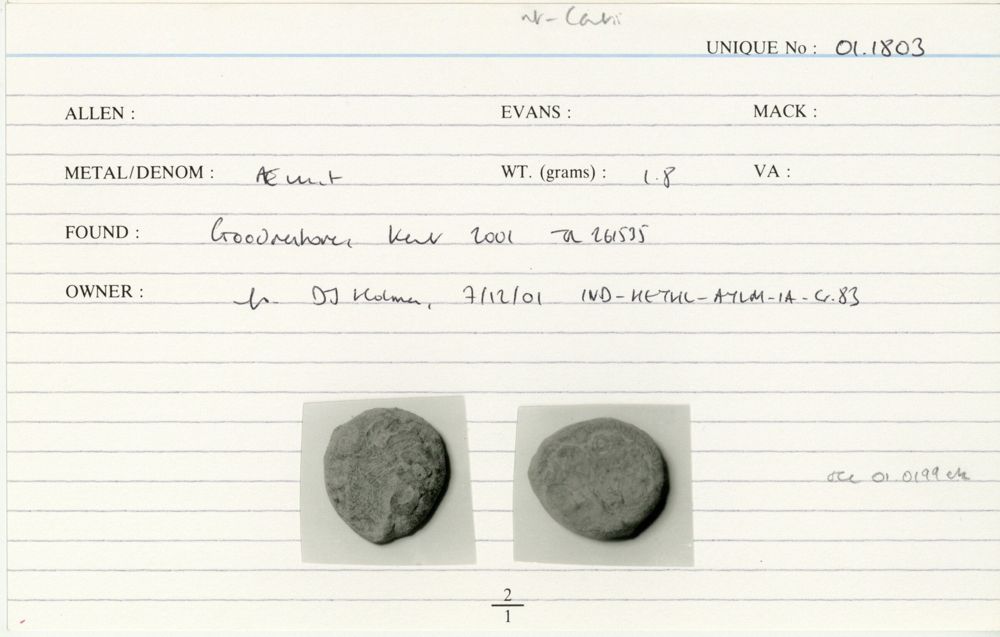 UNIQUE No : 01.1803
ALLEN : EVANS : MACK :
METAL/DENOM : Æ unit WT. (grams) : 1.8 VA :
FOUND : Goodnestone, Kent 2001 TR 261535
OWNER : DJ Holman, 7/12/01 IND-
see 01.0199 etc
2
1